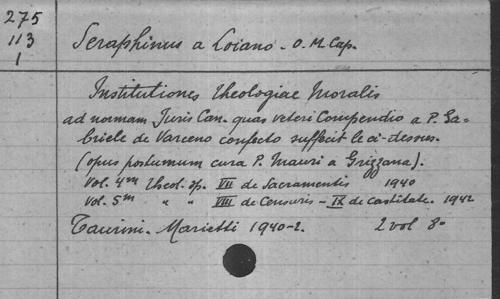 275
113
1
Seraphinus a Loiano - O.M.Cap.
Institutiones theologiae Moralis
ad normam Juris Can. quas veteri Compendio a P. Ga-
briele de Varceno confecto suffecit
(opus postumum cura P. Mauri a Grizzana).
Vol. 4m theol. sp. VII de Sacramentis 1940
Vol. 5m " " VIII de Censuris - IX de castitate. 1942
Taurini - Marietti 1940-2. 2 vol 8º